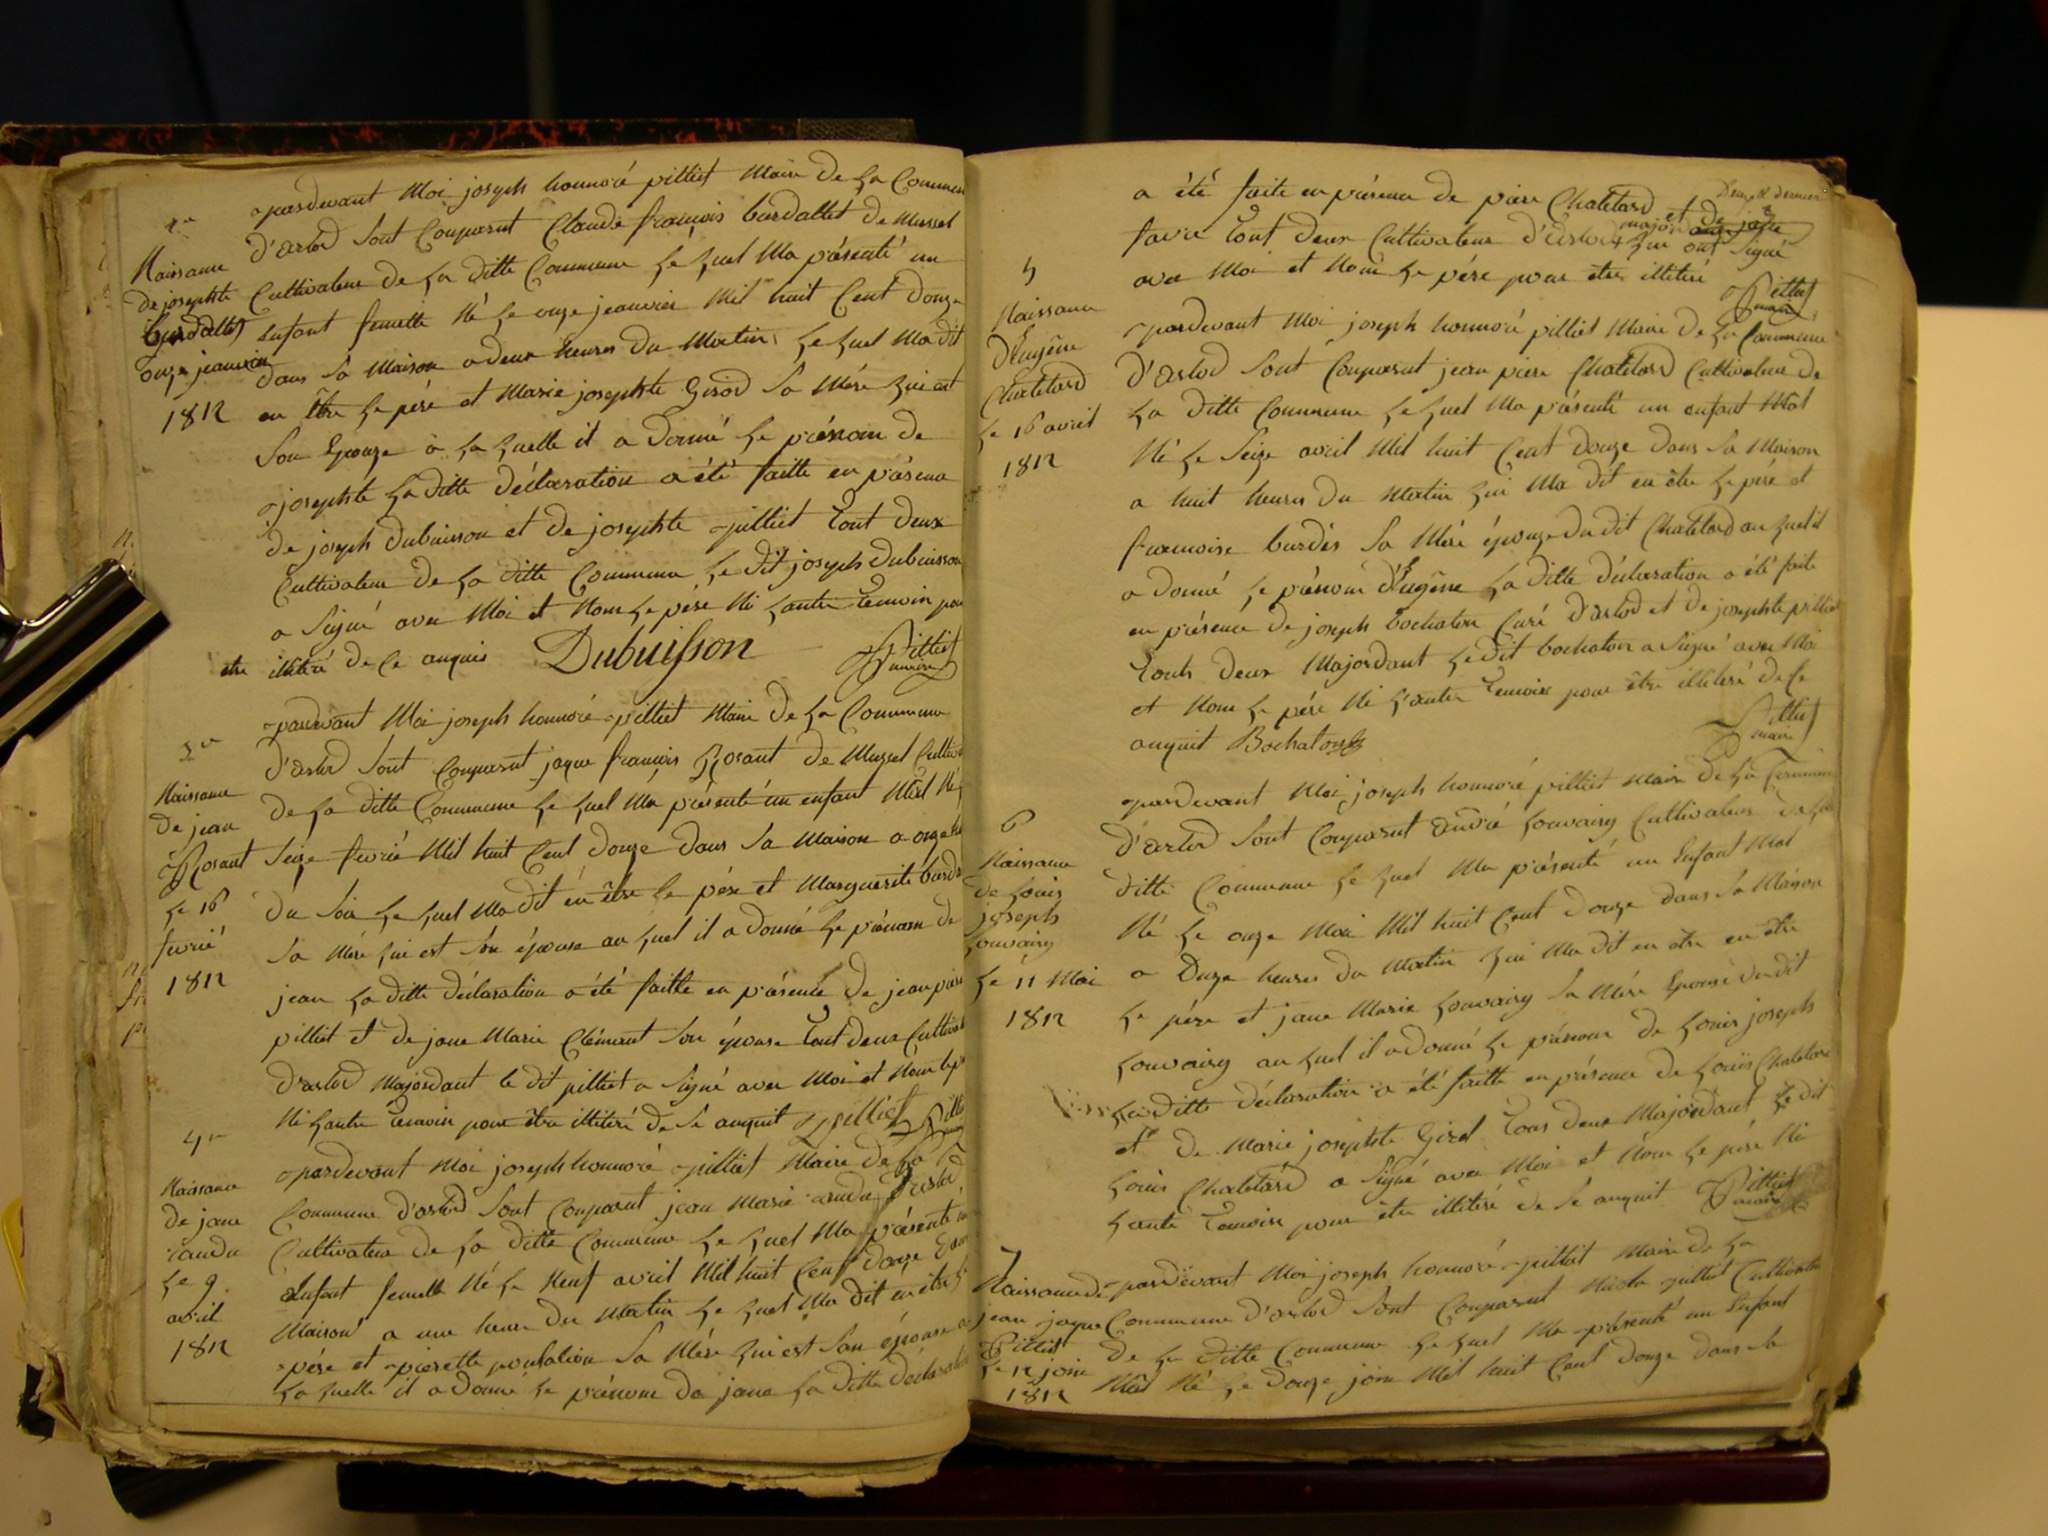 1er
Naissance
de josephte
burdallet
onze jeanvier
1812
pardevant Moi joseph honnoré pilliet Maire De La Commune
D'arlod sont Comparut Claude françois burdallet De Mussel
Cultivateur De La ditte Commune Le quel Ma présenté un
enfant femelle Né Le onze jeanvier Mil huit Cent Douze
dans sa Maison a deux heures Du Matin Le quel Ma dit
en être Le pére et Marie josephte Girod Sa Mére qui est
Son Epouze a La quelle il a Donné Le prénom de
josephte La ditte déclaration a été faitte en présence
De joseph Dubuisson et de josephte pilliet Tout deux
Cultivateur De La ditte Commune Le dit joseph Dubuisson
a Signé avec Moi et Non Le pére Ni Lautre Temoin pour
etre illitéré de Ce anquis Dubuisson Pilliet
maire
Naissance
De jean
Rosant
Le 16
fevrié
1812
pardevant Moi joseph honnoré pilliet Maire De La Commune
D'arlod Sont Comparut jaque françois Rosant De Mussel
De La ditte Commune Le quel Ma présenté un enfant Mâl Né
Seize fevrié Mil huit Cent Douze Dans Sa Maison a onze
du Soir Le quel Ma Dit en être Le pére et Marguerite
Sa Mére qui est Son épouse au quel il a Donné Le prénom De
jean La ditte déclaration a été faitte en présence De jean pierre
pilliet et De jane Marie Clément Son épouse Tout deux
D'arlod Majordant Le dit pilliet a Signé avec Moi et Non Le pére
Ni Lautre Temoin pour être illitéré De Ce anquit pilliet Pilliet
4
Naissance
De jane
Le 9
avril
1812
pardevant Moi joseph honnoré pilliet Maire De La
Commune D'arlod Sont Comparut jean Marie D'arlod
Cultivateur De La Ditte Commune Le quel Ma présenté un
Enfant femelle Né Le Neuf avril Mil huit Cent Douze
Maison a une heure Du Matin Le quel Ma dit en être Le
pére et pierette Sa Mére qui est Son épouse a
La quelle il a Donné Le prénom De jane La ditte Déclaration
a été faite en présence de piere Chatelard et De
favre Tout Deux Cultivateur D'arlod qui ont Signé
avec Moi et Non Le pére pour etre illitéré Pilliet
maire
5
Naissance
D'Eugêne
Chatelard
Le 16 avril
1812
pardevant Moi joseph honnoré pilliet Maire De La Commune
D'arlod Sont Comparut jean piere Chatelard Cultivateur De
La ditte Commune Le quel Ma présenté un enfant Mâl
Né Le Seize avril Mil huit Cent Douze Dans Sa Maison
a huit heures Du Matin qui Ma dit en être Le pére et
francoise burdés Sa Mére épouze Du dit Chatelard au quel il
a Donné Le prénom d'Eugêne La ditte déclaration a été faite
en présence De joseph bochaton Curé D'arlod et De josephte pilliet
Touts Deux Majordant Le dit bochaton a Signé avec Moi
et Non Le pére Ni Lautre Temoin pour être illitéré De Ce
anquit Bochaton Pilliet
maire
6
Naissance
de Louis
joseph
Louvairy
Le 11 Mai
1812
pardevant Moi joseph honnoré pilliet Maire De La Commune
D'arlod Sont Comparut André Louvairy Cultivateur De La
ditte Commune Le quel Ma présenté un Enfant Mal
Né Le onze Mai Mil huit Cent Douze Dans Sa Maison
a Duze heures Du Matin qui Ma dit en être en être
Le pére et jane Marie Louvairy Sa Mére Epouse Du dit
Louvairy au quel il a Donné Le prénom De Louis joseph
La ditte déclaration a été faitte en présence De Louis Chatelard
et De Marie josephte Girel Tous Deux Majordant Le dit
Louis Chatelard a Signé avec Moi et Non Le pére Ni
Lautre Temoin pour etre illitéré de Ce anquit Pilliet
maire
Naissance de
jean jaque
Pilliet
Le 12 join
1812
pardevant Moi joseph honnoré pilliet Maire De La
Commune D'arlod Sont Comparut Nicola pilliet Cultivateur
De La Ditte Commune Le quel Ma présenté un Enfant
Mâl Né Le Douze join Mil huit Cent Douze Dans Sa